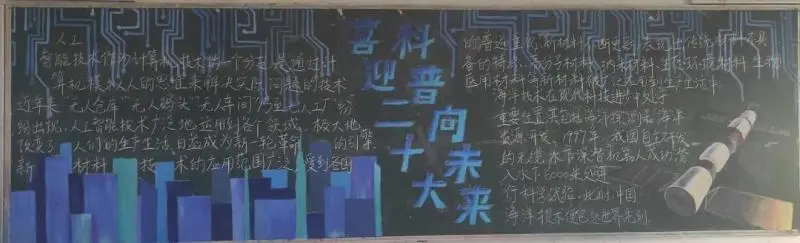 人工
智能技术作为计算机技术的一个分支,是通过计
算机模拟人的思维来解决实际问题的技术
近年来“无人仓库”“无人码头”“无人车间”乃至“无人工厂”纷
纷出现,人工智能技术广泛地运用到各个领域,极大地
改变了人们的生产生活,日益成为新一轮革命的引擎.
新材料技术的应用范围广泛,受到各国
喜迎二十大
科普向未来
的普遍重视.新材料不断更新,表现出传统材料不具
备的特点,高分子材料、纳米材料、生态环境材料、生物
医用材料等新材料被广泛运用到生产生活中.
海洋技术在现代科技进步中处于
重要位置,其包括海洋探测与海洋
资源开发.1997年,我国自主研发
的无缆水下深潜机器人成功潜
入水下6000米处进
行科学试验.此时,中国
海洋技术便已达世界先列.